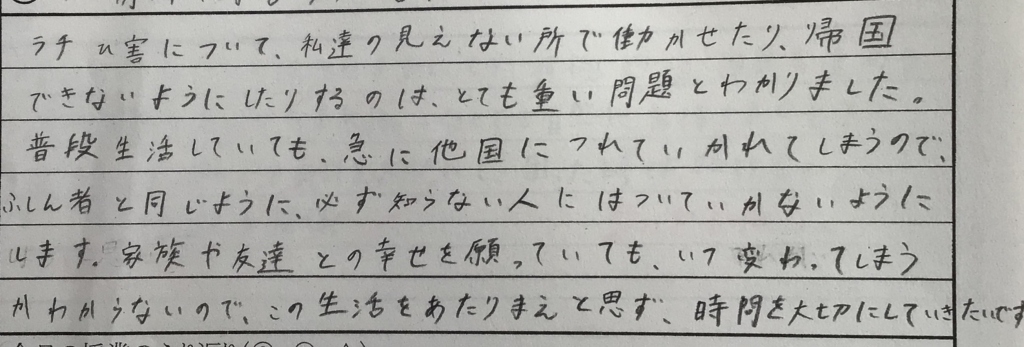 ラチひ害について、私達の見えない所で働かせたり、帰国
できないようにしたりするのは、とても重い問題とわかりました。
普段生活していても、急に他国につれていかれてしまうので、
ふしん者と同じように、必ず知らない人にはついていかないように
します。家族や友達との幸せを願っていても、いつ変わってしまう
かわからないので、この生活をあたりまえと思ず、時間を大切にしていきたいです